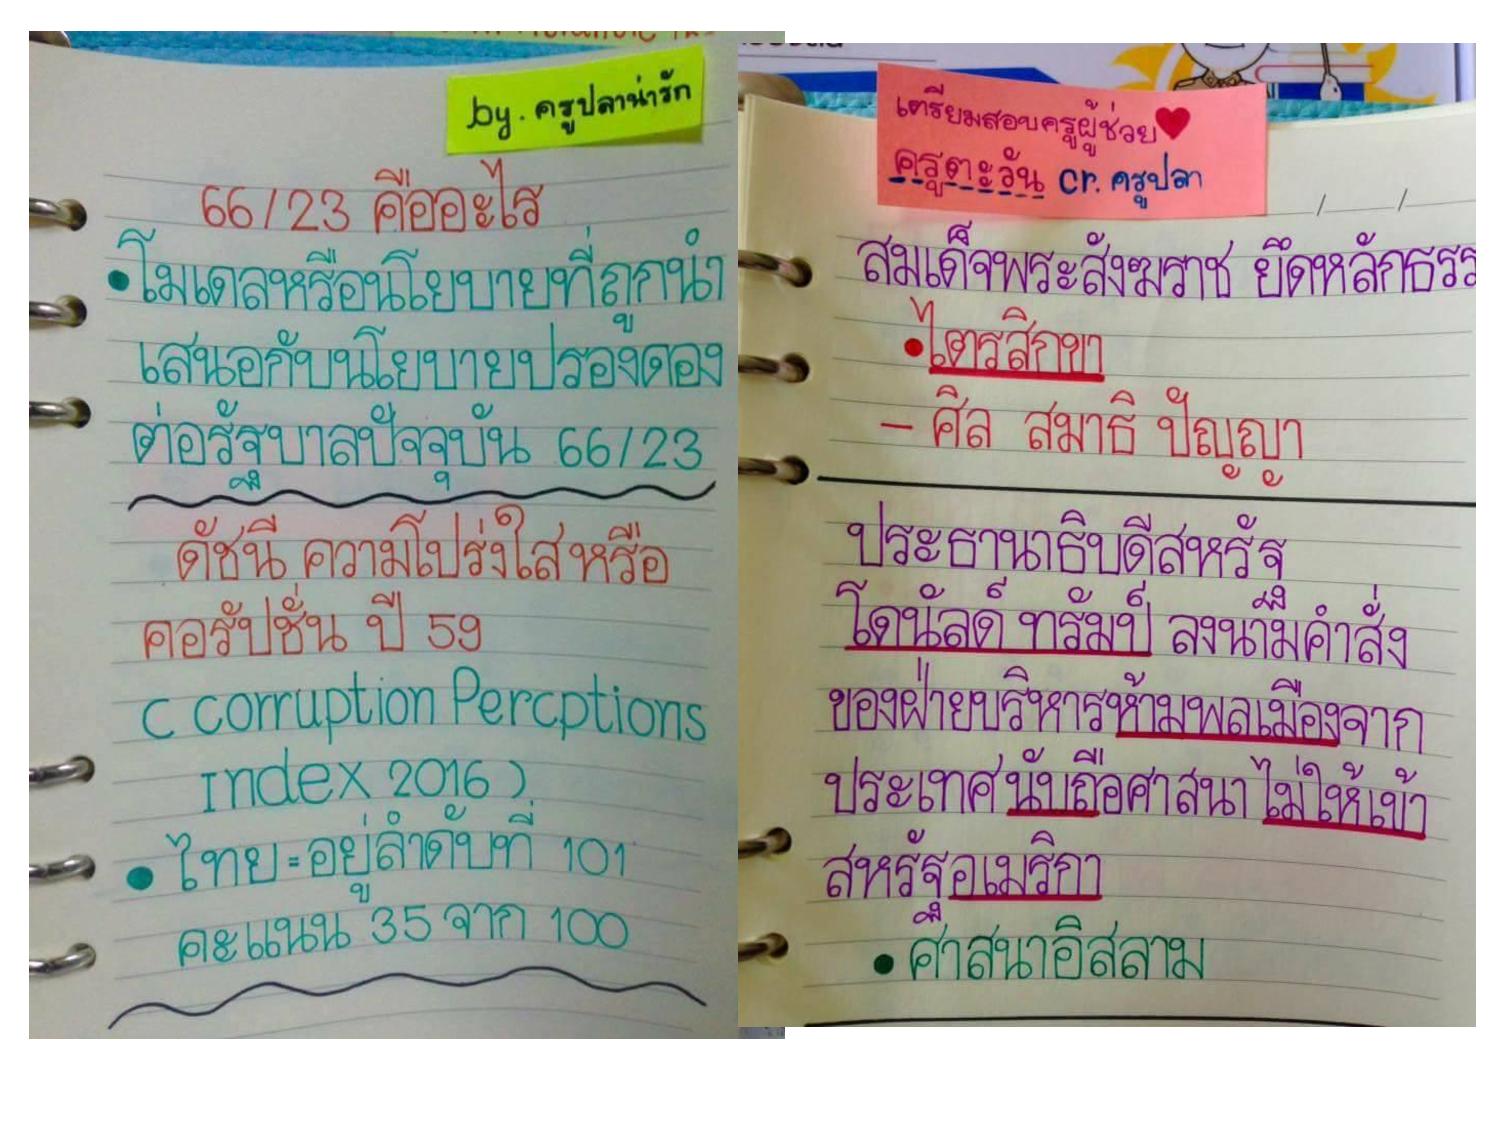 by. ครูปลาน่ารัก
66/23 คืออะไร
• โมเดลหรือนโยบายที่ถูกนำ
เสนอกับนโยบายปรองดอง
ต่อรัฐบาลปัจจุบัน 66/23
ดัชนี ความโปร่งใส หรือ
คอรัปชั่น ปี 59
C corruption Percptions
Index 2016 )
• ไทย = อยู่ลำดับที่ 101
คะแนน 35 จาก 100
เตรียมสอบครูผู้ช่วย
ครูตะวัน cr. ครูปลา
สมเด็จพระสังฆราช ยึดหลักธรร
• ไตรสิกขา
- ศิล สมาธิ ปัญญา
ประธานาธิบดีสหรัฐ
โดนัลด์ ทรัมป์ ลงนามคำสั่ง
ของฝ่ายบริหารห้ามพลเมืองจาก
ประเทศนับถือศาสนา ไม่ให้เข้า
สหรัฐอเมริกา
• ศาสนาอิสลาม